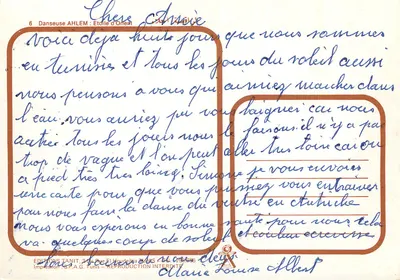 Chere Annie
6 Danseuse AHLEM : Etoile d'Orient
voici déja huite jours que nous sommes
en tunisie et tous les jours du soleil aussi
nous pensons a vous que auriez marcher dans
l'eau vous auriez pu vous baigner car nous
autres tous les jours nous le faisons il n'y a pas
trop de vague et l'on peut aller tres loin car on
a pied tres tres loin Simone je vous envoie
une carte pour que vous puissiez vous entrainer
pour nous faire la danse du ventre en
nous vous esperons en bonne santé pour nous cela
va quelques coup de soleil et couleur ecrevisse
bons baisers de nous deux
Marie Louise Albert
REPRODUCTION INTERDITE